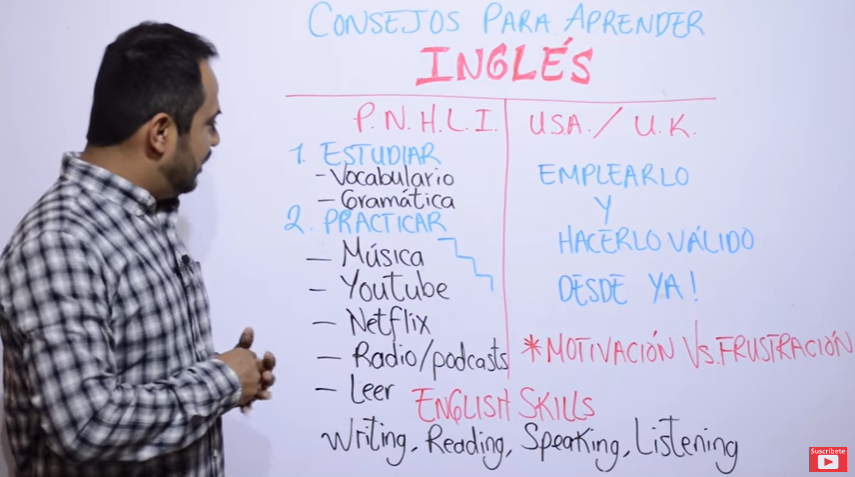 CONSEJOS PARA APRENDER
INGLÉS
P.N.H.L.I.
1. ESTUDIAR
-Vocabulario
-Gramática
2. PRACTICAR
- Música
- Youtube
- Netflix
- Radio/podcasts
- Leer
U.S.A. / U.K.
EMPLEARLO
Y
HACERLO VÁLIDO
DESDE YA!
*MOTIVACIÓN Vs. FRUSTRACIÓN
ENGLISH SKILLS
Writing, Reading, Speaking, Listening
Suscríbete